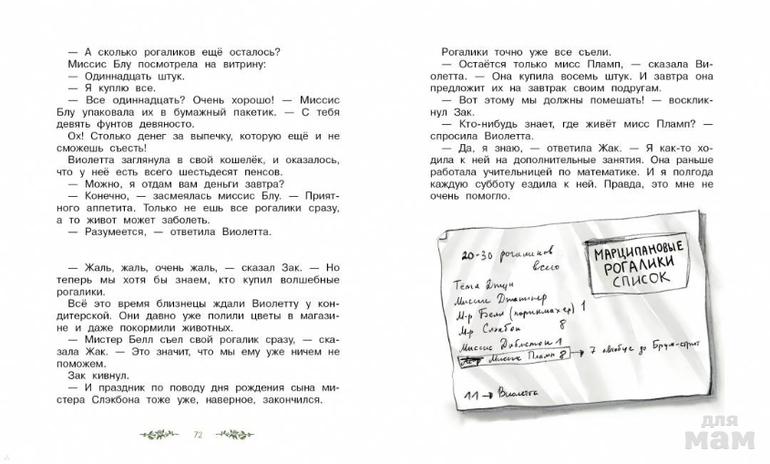 — А сколько рогаликов ещё осталось?
Миссис Блу посмотрела на витрину:
— Одиннадцать штук.
— Я куплю все.
— Все одиннадцать? Очень хорошо! — Миссис
Блу упаковала их в бумажный пакетик. — С тебя
девять фунтов девяносто.
Ох! Столько денег за выпечку, которую ещё и не
сможешь съесть!
Виолетта заглянула в свой кошелёк, и оказалось,
что у неё есть всего шестьдесят пенсов.
— Можно, я отдам вам деньги завтра?
— Конечно, — засмеялась миссис Блу. — Прият-
ного аппетита. Только не ешь все рогалики сразу,
а то живот может заболеть.
— Разумеется, — ответила Виолетта.
— Жаль, жаль, очень жаль, — сказал Зак. — Но
теперь мы хотя бы знаем, кто купил волшебные
рогалики.
Всё это время близнецы ждали Виолетту у кон-
дитерской. Они давно уже полили цветы в магази-
не и даже покормили животных.
— Мистер Белл съел свой рогалик сразу, — ска-
зала Жак. — Это значит, что мы ему уже ничем не
поможем.
Зак кивнул.
— И праздник по поводу дня рождения сына ми-
стера Слэкбона тоже уже, наверное, закончился.
72
Рогалики точно уже все съели.
— Остаётся только мисс Пламп, — сказала Ви-
олетта. — Она купила восемь штук. И завтра она
предложит их на завтрак своим подругам.
— Вот этому мы должны помешать! — восклик-
нул Зак.
— Кто-нибудь знает, где живёт мисс Пламп? —
спросила Виолетта.
— Да, я знаю, — ответила Жак. — Я как-то хо-
дила к ней на дополнительные занятия. Она раньше
работала учительницей по математике. И я полгода
каждую субботу ездила к ней. Правда, это мне не
очень помогло.
20-30 рогаликов
всего
МАРЦИПАНОВЫЕ
РОГАЛИКИ
СПИСОК
Тётя Джун
Миссис
М-р Белл (парикмахер) 1
М-р Слэкбон 8
Миссис 1
Миссис Пламп 8 → 7 автобус до
11 → Виолетта
для
мам